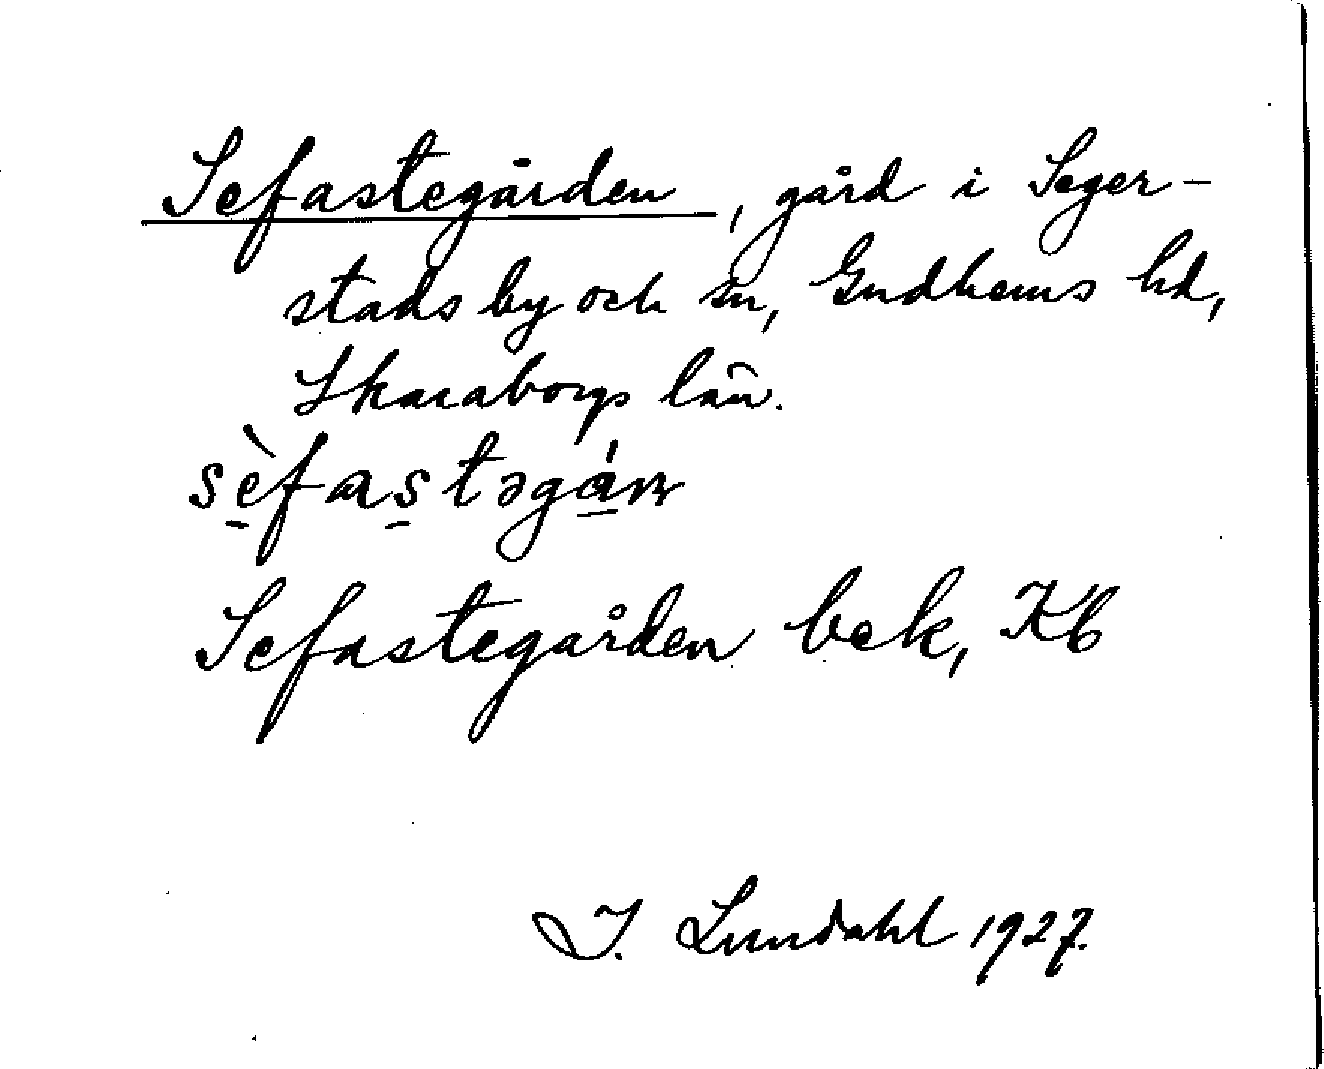 Sefastegården, gård i Seger-
stads by och sn, Gudhems hd,
Skaraborgs län.
sè̱fas̱təgá̱ɳ
Sefastegården bek, Kb
I. Lundahl 1927.